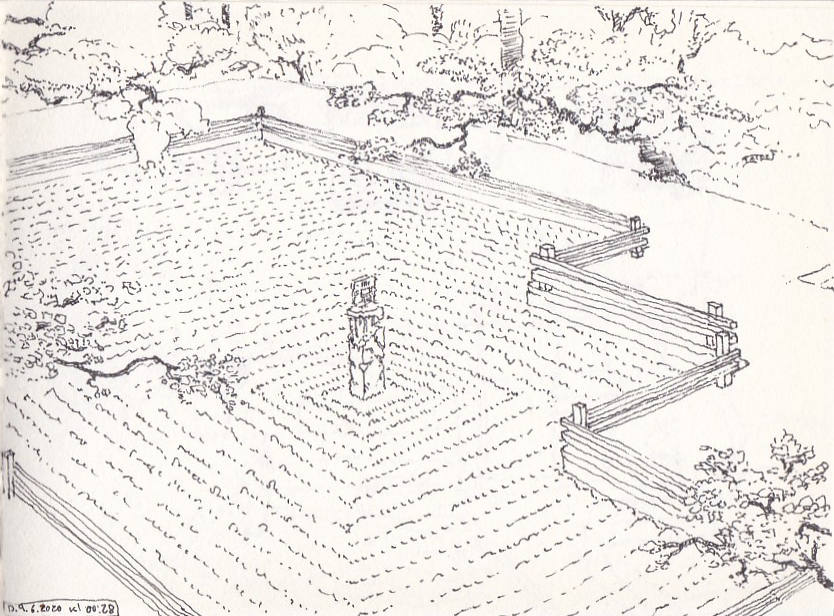 D. 9. 6. 2020 kl 00:28